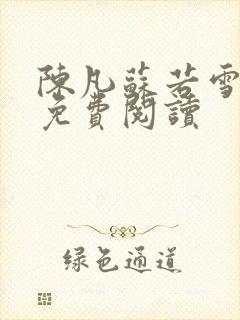 陳凡蘇若雪
免費閱讀
绿色通道